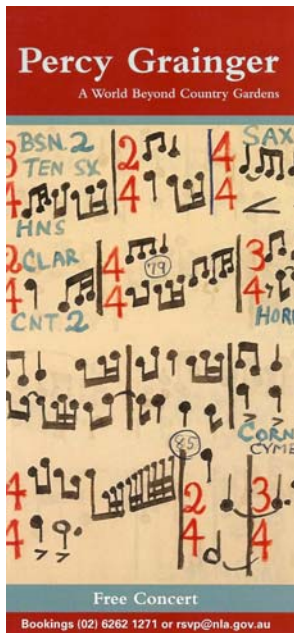 Percy Grainger
A World Beyond Country Gardens
BSN. 2
TEN SX
SAX
3
4
2
4
4
4
HNS
2
4
CLAR
4
4
79
3
4
CNT 2
HOR
85
CORN
CYME
4
4
2
4
3
4
Free Concert
Bookings (02) 6262 1271 or rsvp@nla.gov.au